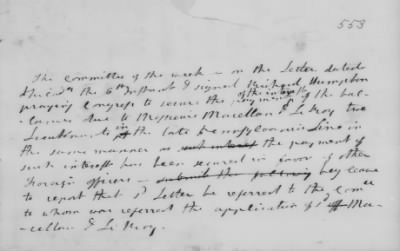 553
The Committee of the week – on the Letter dated
the 6th Instant & signed Richard Humpton
praying Congress to secure the payment of the interest of the bal-
lances due to Messieurs Macellan & Le Roy two
Lieutenants in the late Pennsylvania Line in
the same manner as the payment of
such interest has been secured in favor of other
Foreign officers – submit the following beg leave
to report that sd. Letter be referred to the Comee
to whom was referred the application of sd. Ma-
cellan & Le Roy.